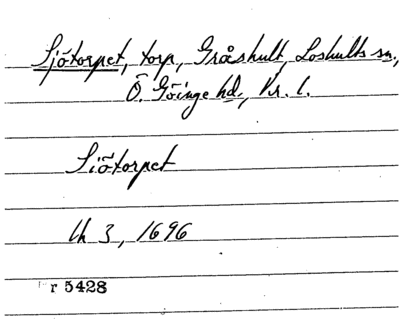 Sjötorpet, torp, Gråshult, Loshults sn,
Ö. Göinge hd., Kr. l.
Siötorpet
Uh 3, 1696
r 5428